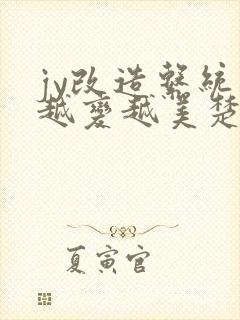 jy改造系統
越變越美楚
夏寅官